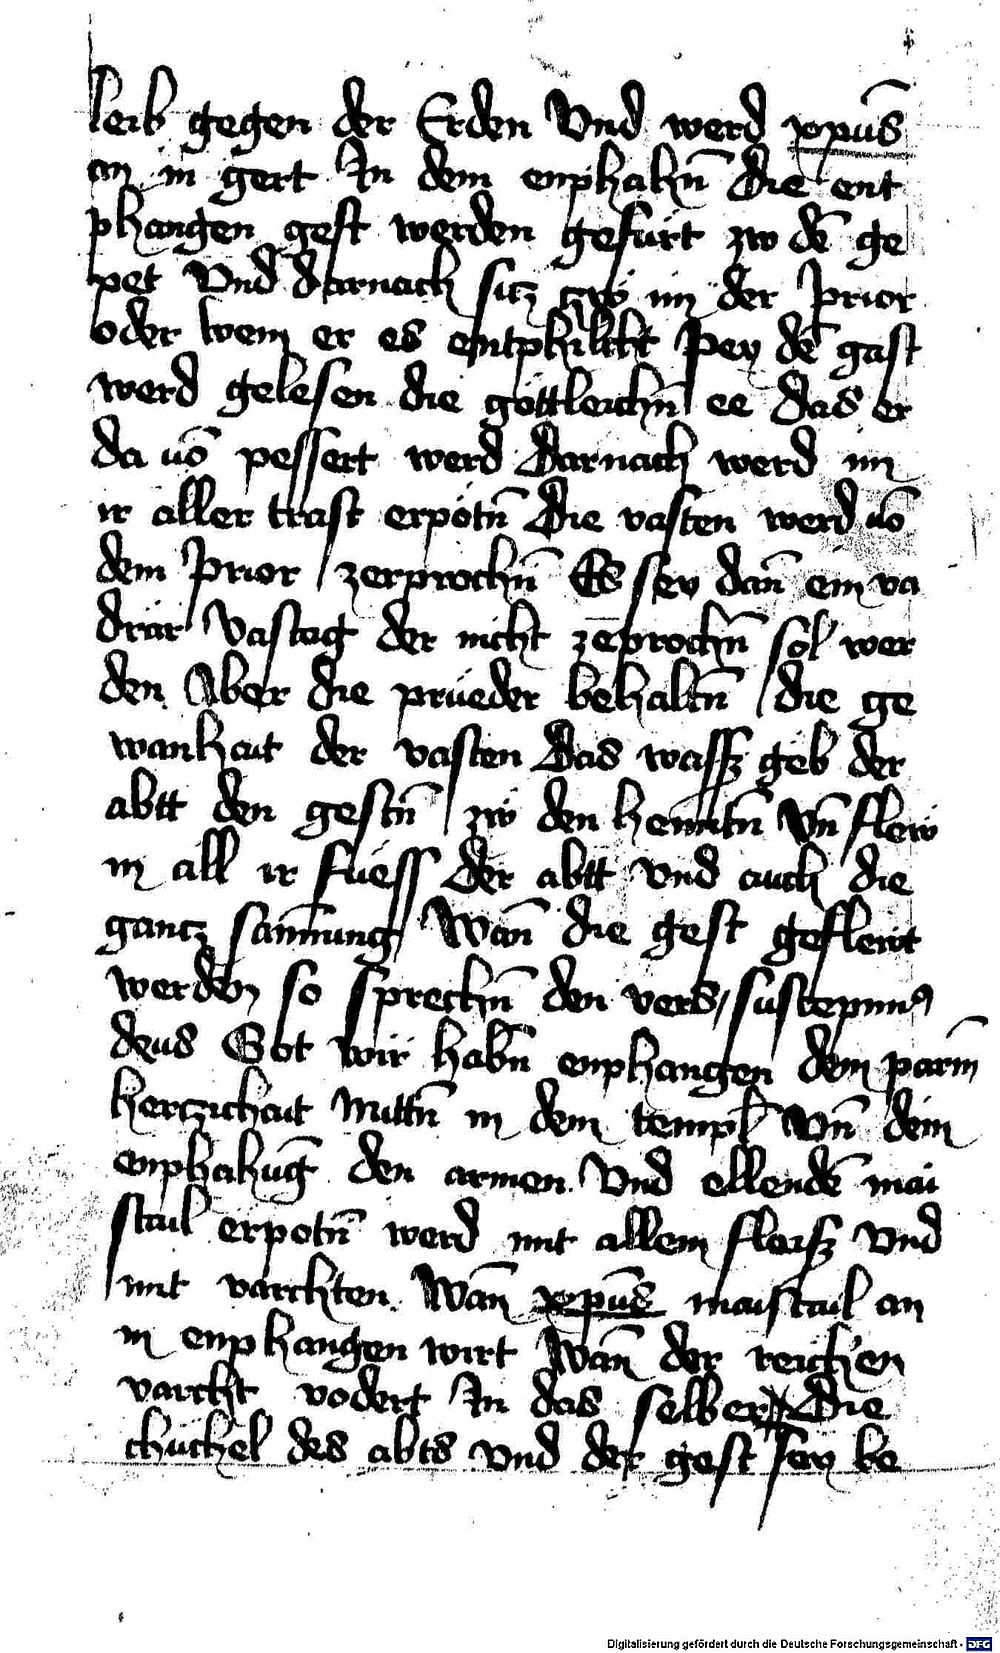 leib gegen der Erden Vnd werd xpūs
an in gert In dem enphahn̄ Die ent
phangen gest werden gefürt zw dē ge
pet Vnd darnach sitz zw im der Prior
oder wem er es entphilcht Pey dē gast
werd gelesen die göttleichn̄ ee das er
da uō pessert werd Darnach werd im
ir aller trast erpotn̄ Die vasten werd uō
dem Prior zerprochn̄ Es sey dan̄ ein va
drär Vastag der nicht zeprochn̄ sol wer
den Aber die prüeder behaltn̄ die ge
wanhait der vasten Das wassz geb der
abtt den gestn̄ zw den henntn̄ Vn̄ flew
in all ir füess Der abtt vnd auch die
gancz samnūng Wan̄ die gest geflewt
werden so sprechn̄ den vers / suscepimꝰ
deus Got wir habn̄ enphangen dein parm̄
herczichait Mittn̄ in dem templ Vn̄ dein
enphahūg den armen Vnd ellendē mai
stail erpotn̄ werd mit allem fleissz Vnd
mit varchten. Wan̄ xpūs maistail an
in enphangen wirt Wan̄ der reichen
varcht vodert In das selber Die
chuchel des abts vnd der gest sey be
Digitalisierung gefördert durch die Deutsche Forschungsgemeinschaft - DFG